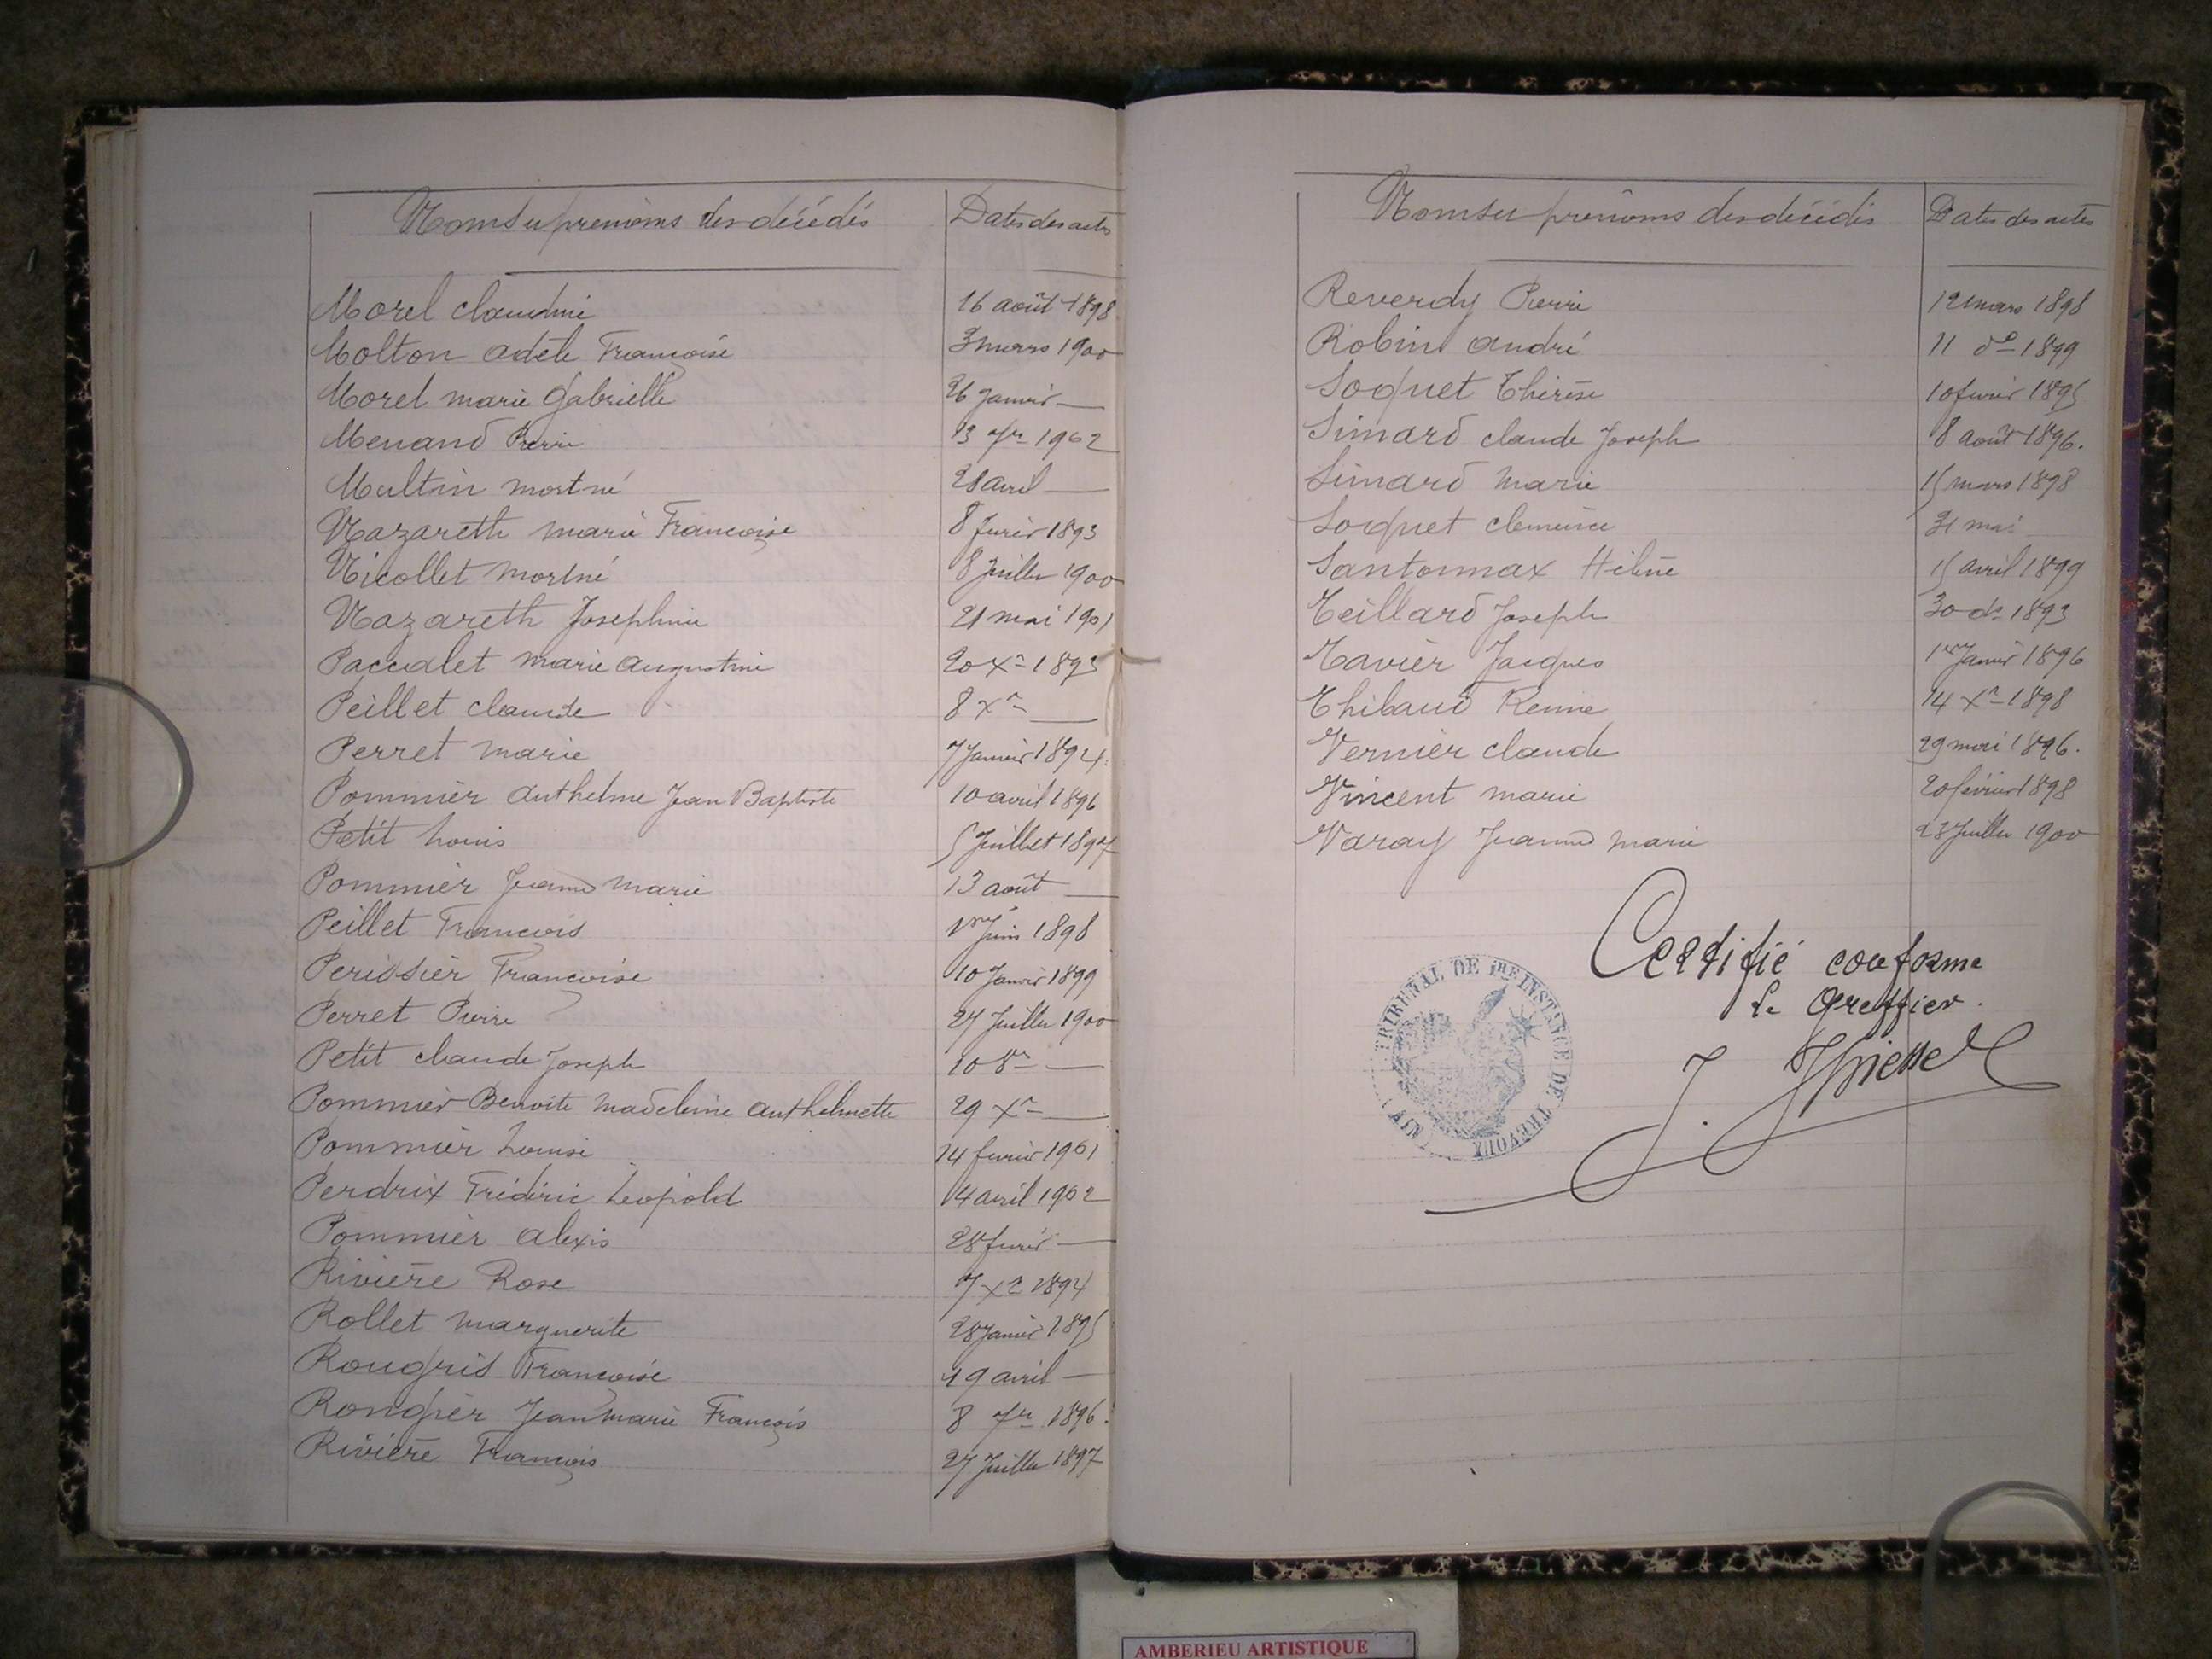 Noms et prénoms des décédés Dates des actes
Morel claudine 16 août 1898
Molton adèle Françoise 3 mars 1900
Morel marie Gabrielle 26 Janvier —
Menand Pierre 13 7re 1902
Multin mort né 28 avril —
Nazareth marie Françoise 8 février 1893
Nicollet mort né 8 Juillet 1900
Nazareth Josephine 21 mai 1901
Paccalet marie augustine 20 Xre 1893
Peillet claude 8 Xre —
Perret marie 7 Janvier 1894
Pommier anthelme Jean Baptiste 10 avril 1896
Petit Louis 5 Juillet 1897
Pommier Jeanne marie 13 août —
Peillet François 1er Juin 1898
Perissier Françoise 10 Janvier 1899
Perret Pierre 27 Juillet 1900
Petit claude Joseph 10 8re —
Pommier Benoite madeleine anthelmette 29 Xre —
Pommier Louise 14 février 1901
Perdrix Frédéric Léopold 14 avril 1902
Pommier alexis 28 février —
Rivière Rose 7 Xre 1894
Rollet marguerite 28 Janvier 1895
Rougris Françoise 19 avril —
Rongier Jean marie François 8 7re 1896.
Rivière François 27 Juillet 1897
Noms et prénoms des décédés Dates des actes
Reverdy Pierre 12 mars 1898
Robin andré 11 do 1899
Soquet Thérèse 10 février 1895
Simard claude Joseph 8 août 1896.
Simard marie 15 mars 1898
Soquet clemence 31 mai —
Santonnax Hélène 15 avril 1899
Teillard Joseph 30 do 1893
Tavier Jacques 1er Janvier 1896
Thibaud Renne 14 Xre 1898
Vernier claude 29 mai 1896.
Vincent marie 20 février 1898
Varay Jeanne marie 28 Juillet 1900
Certifié conforme
Le Greffier.
J.
TRIBUNAL DE 1RE INSTANCE DE TREVOUX (AIN)
AMBERIEU ARTISTIQUE